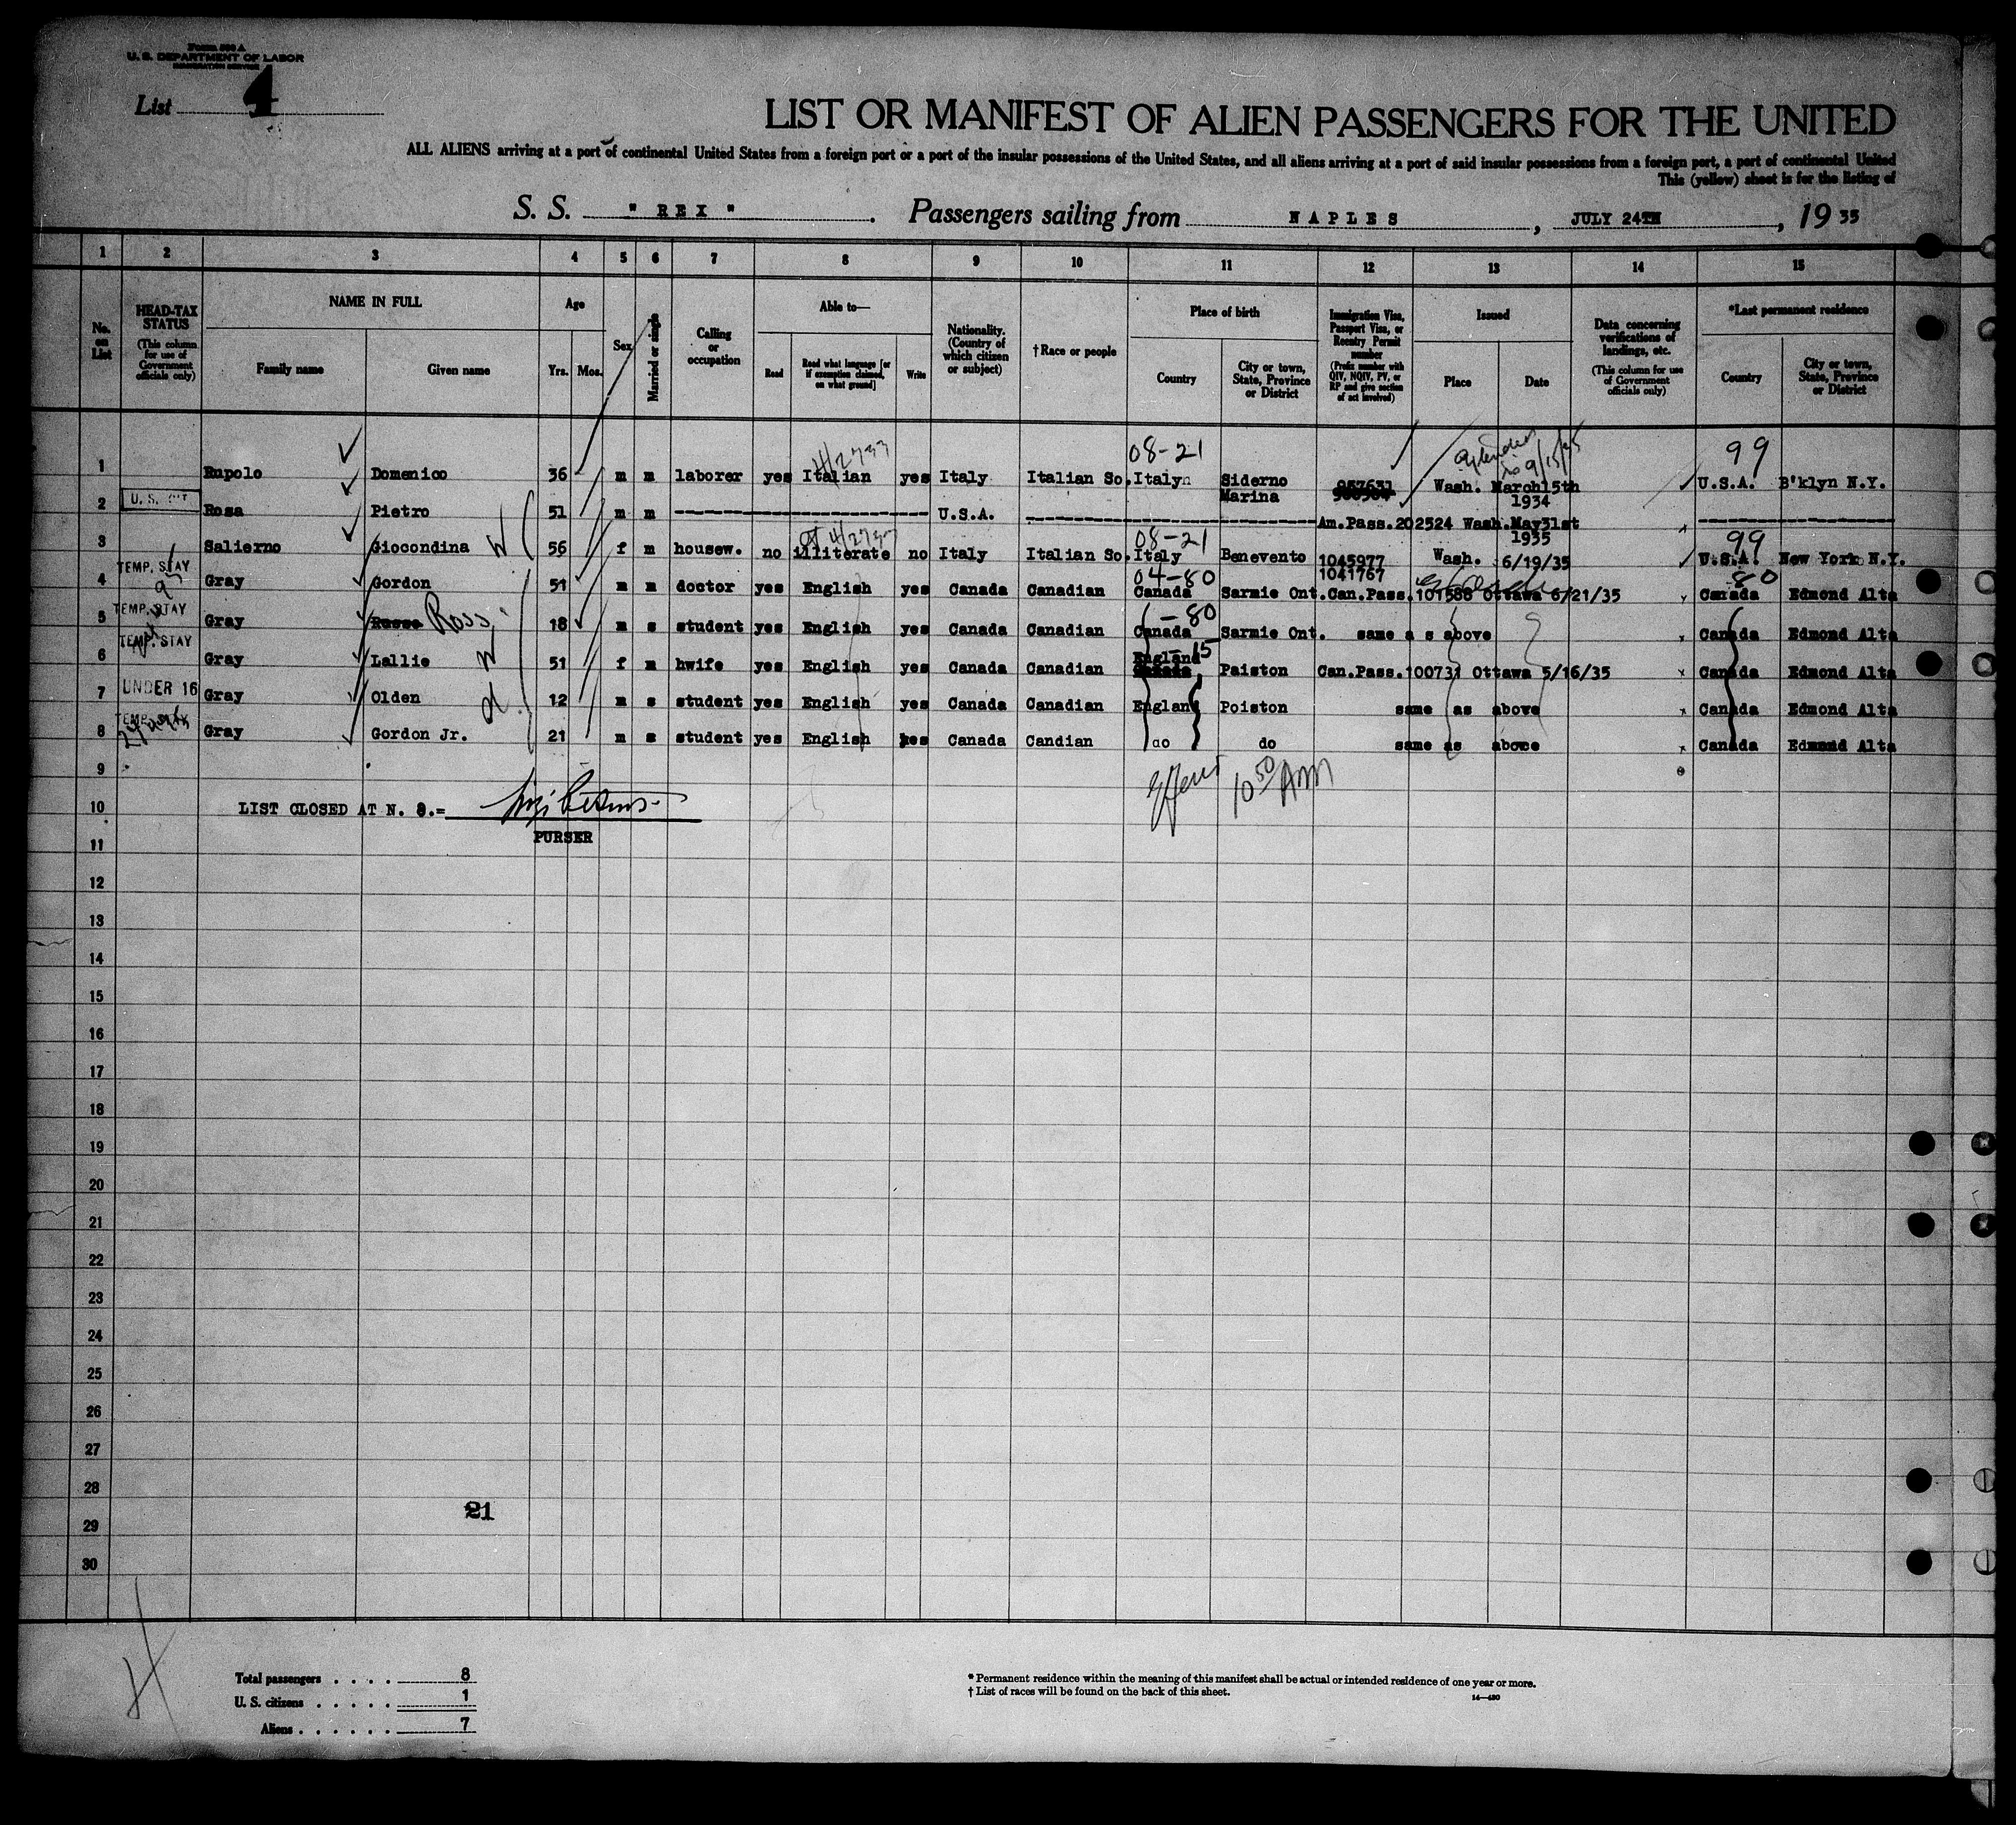 Form 500 A
U. S. DEPARTMENT OF LABOR
IMMIGRATION SERVICE
List 4
LIST OR MANIFEST OF ALIEN PASSENGERS FOR THE UNITED
ALL ALIENS arriving at a port of continental United States from a foreign port or a port of the insular possessions of the United States, and all aliens arriving at a port of said insular possessions from a foreign port, a port of continental United
This (yellow) sheet is for the listing of
S. S. " REX " . Passengers sailing from NAPLES , JULY 24TH , 19 35
1 2 3 4 5 6 7 8 9 10 11 12 13 14 15
No. on List
HEAD-TAX STATUS (This column for use of Government officials only)
NAME IN FULL
Family name Given name
Age
Yrs. Mos.
Sex
Married or single
Calling or occupation
Able to—
Read Read what language [or if exemption claimed, on what ground] Write
Nationality. (Country of which citizen or subject)
†Race or people
Place of birth
Country City or town, State, Province or District
Immigration Visa, Passport Visa, or Reentry Permit number (Prefix number with QIV, NQIV, PV, or RP and give section of act involved)
Issued
Place Date
Data concerning verifications of landings, etc. (This column for use of Government officials only)
*Last permanent residence
Country City or town, State, Province or District
08-21 99
1 Rupolo Domenico 36 m m laborer yes Italian yes Italy Italian So. Italy Siderno Marina 957631 Wash. March15th 1934 U.S.A. B'klyn N.Y.
2 U. S. CIT Rosa Pietro 51 m m U.S.A. Am.Pass.202524 Wash.May31st 1935
08-21 99
3 Salierno Giocondina W 56 f m housew. no illiterate no Italy Italian So. Italy Benevento 1045977 Wash. 6/19/35 U.S.A. New York N.Y.
1041767
TEMP. STAY 04-80 80
4 Gray Gordon 51 m m doctor yes English yes Canada Canadian Canada Sarmie Ont. Can.Pass.101588 Ottawa 6/21/35 Canada Edmond Alta
TEMP. STAY - 80
5 Gray Russe Ross 18 m s student yes English yes Canada Canadian Canada Sarmie Ont. same a s above Canada Edmond Alta
TEMP. STAY - 15
6 Gray Lallie W 51 f m hwife yes English yes Canada Canadian England Canada Paiston Can.Pass.100731 Ottawa 5/16/35 Canada Edmond Alta
7 UNDER 16 Gray Olden 12 m s student yes English yes Canada Canadian England Poiston same as above Canada Edmond Alta
TEMP. STAY
8 Gray Gordon Jr. 21 m s student yes English yes Canada Candian do do same as above Canada Edmond Alta
9
10 LIST CLOSED AT N. 8.=
PURSER
10 50 AM
11
12
13
14
15
16
17
18
19
20
21
22
23
24
25
26
27
28
21
29
30
Total passengers . . . . 8
U. S. citizens . . . . . 1
Aliens . . . . . . 7
* Permanent residence within the meaning of this manifest shall be actual or intended residence of one year or more.
† List of races will be found on the back of this sheet.
14—480